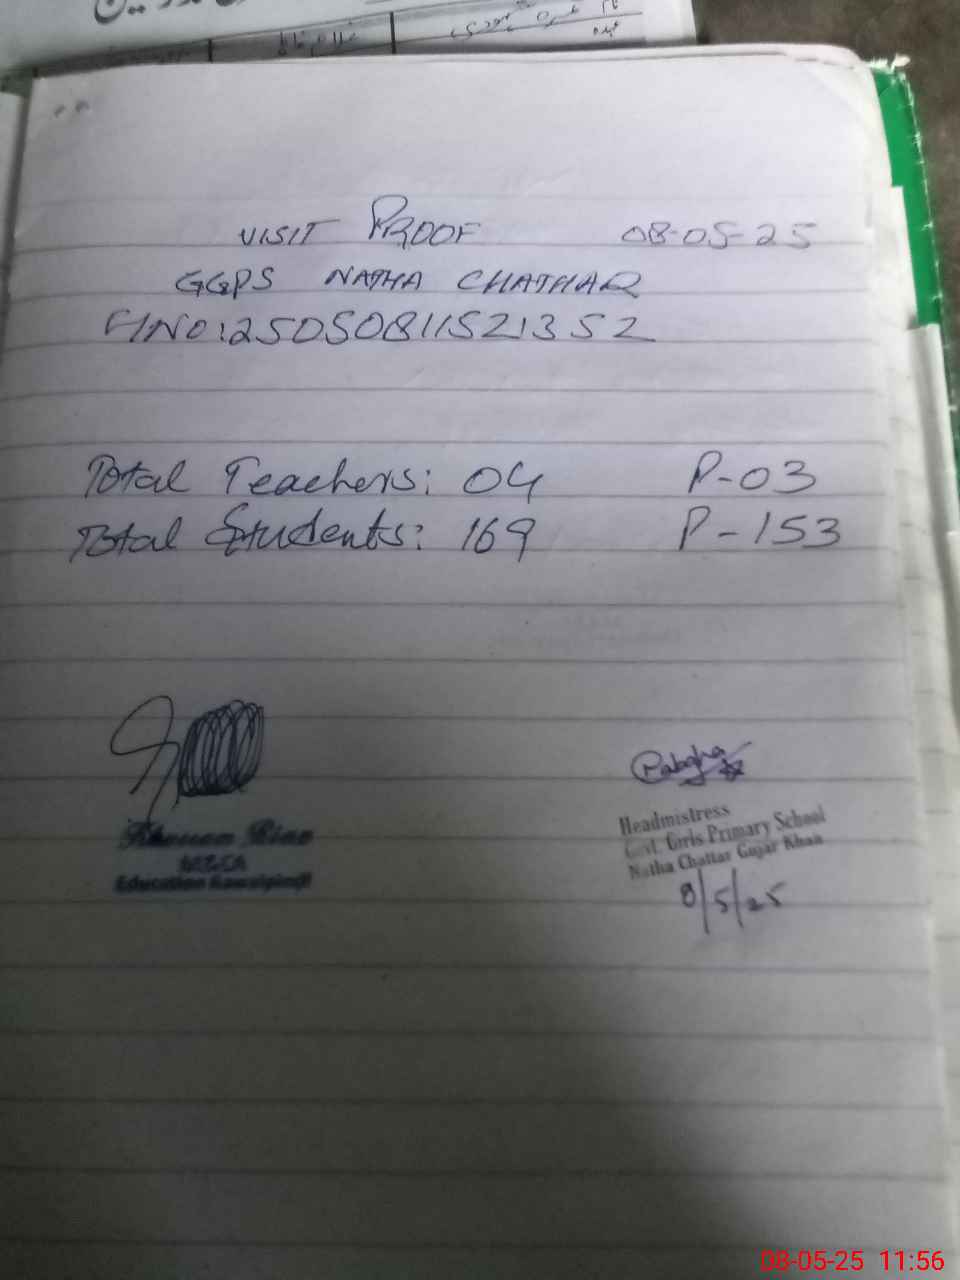 VISIT PROOF 08-05-25
GGPS NATHA CHATHAR
F/NO:25050811521352
Total Teachers: 04 P-03
Total Students: 169 P-153
Headmistress
Govt. Girls Primary School
Natha Chattar Gujar Khan
8/5/25
Riaz
Education Rawalpindi
08-05-25 11:56